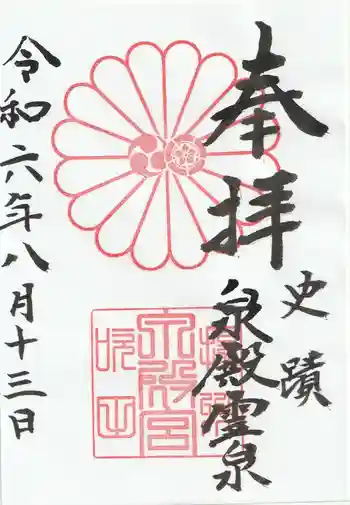 奉拝
史蹟
泉殿霊泉
泉殿宮
令和六年八月十三日